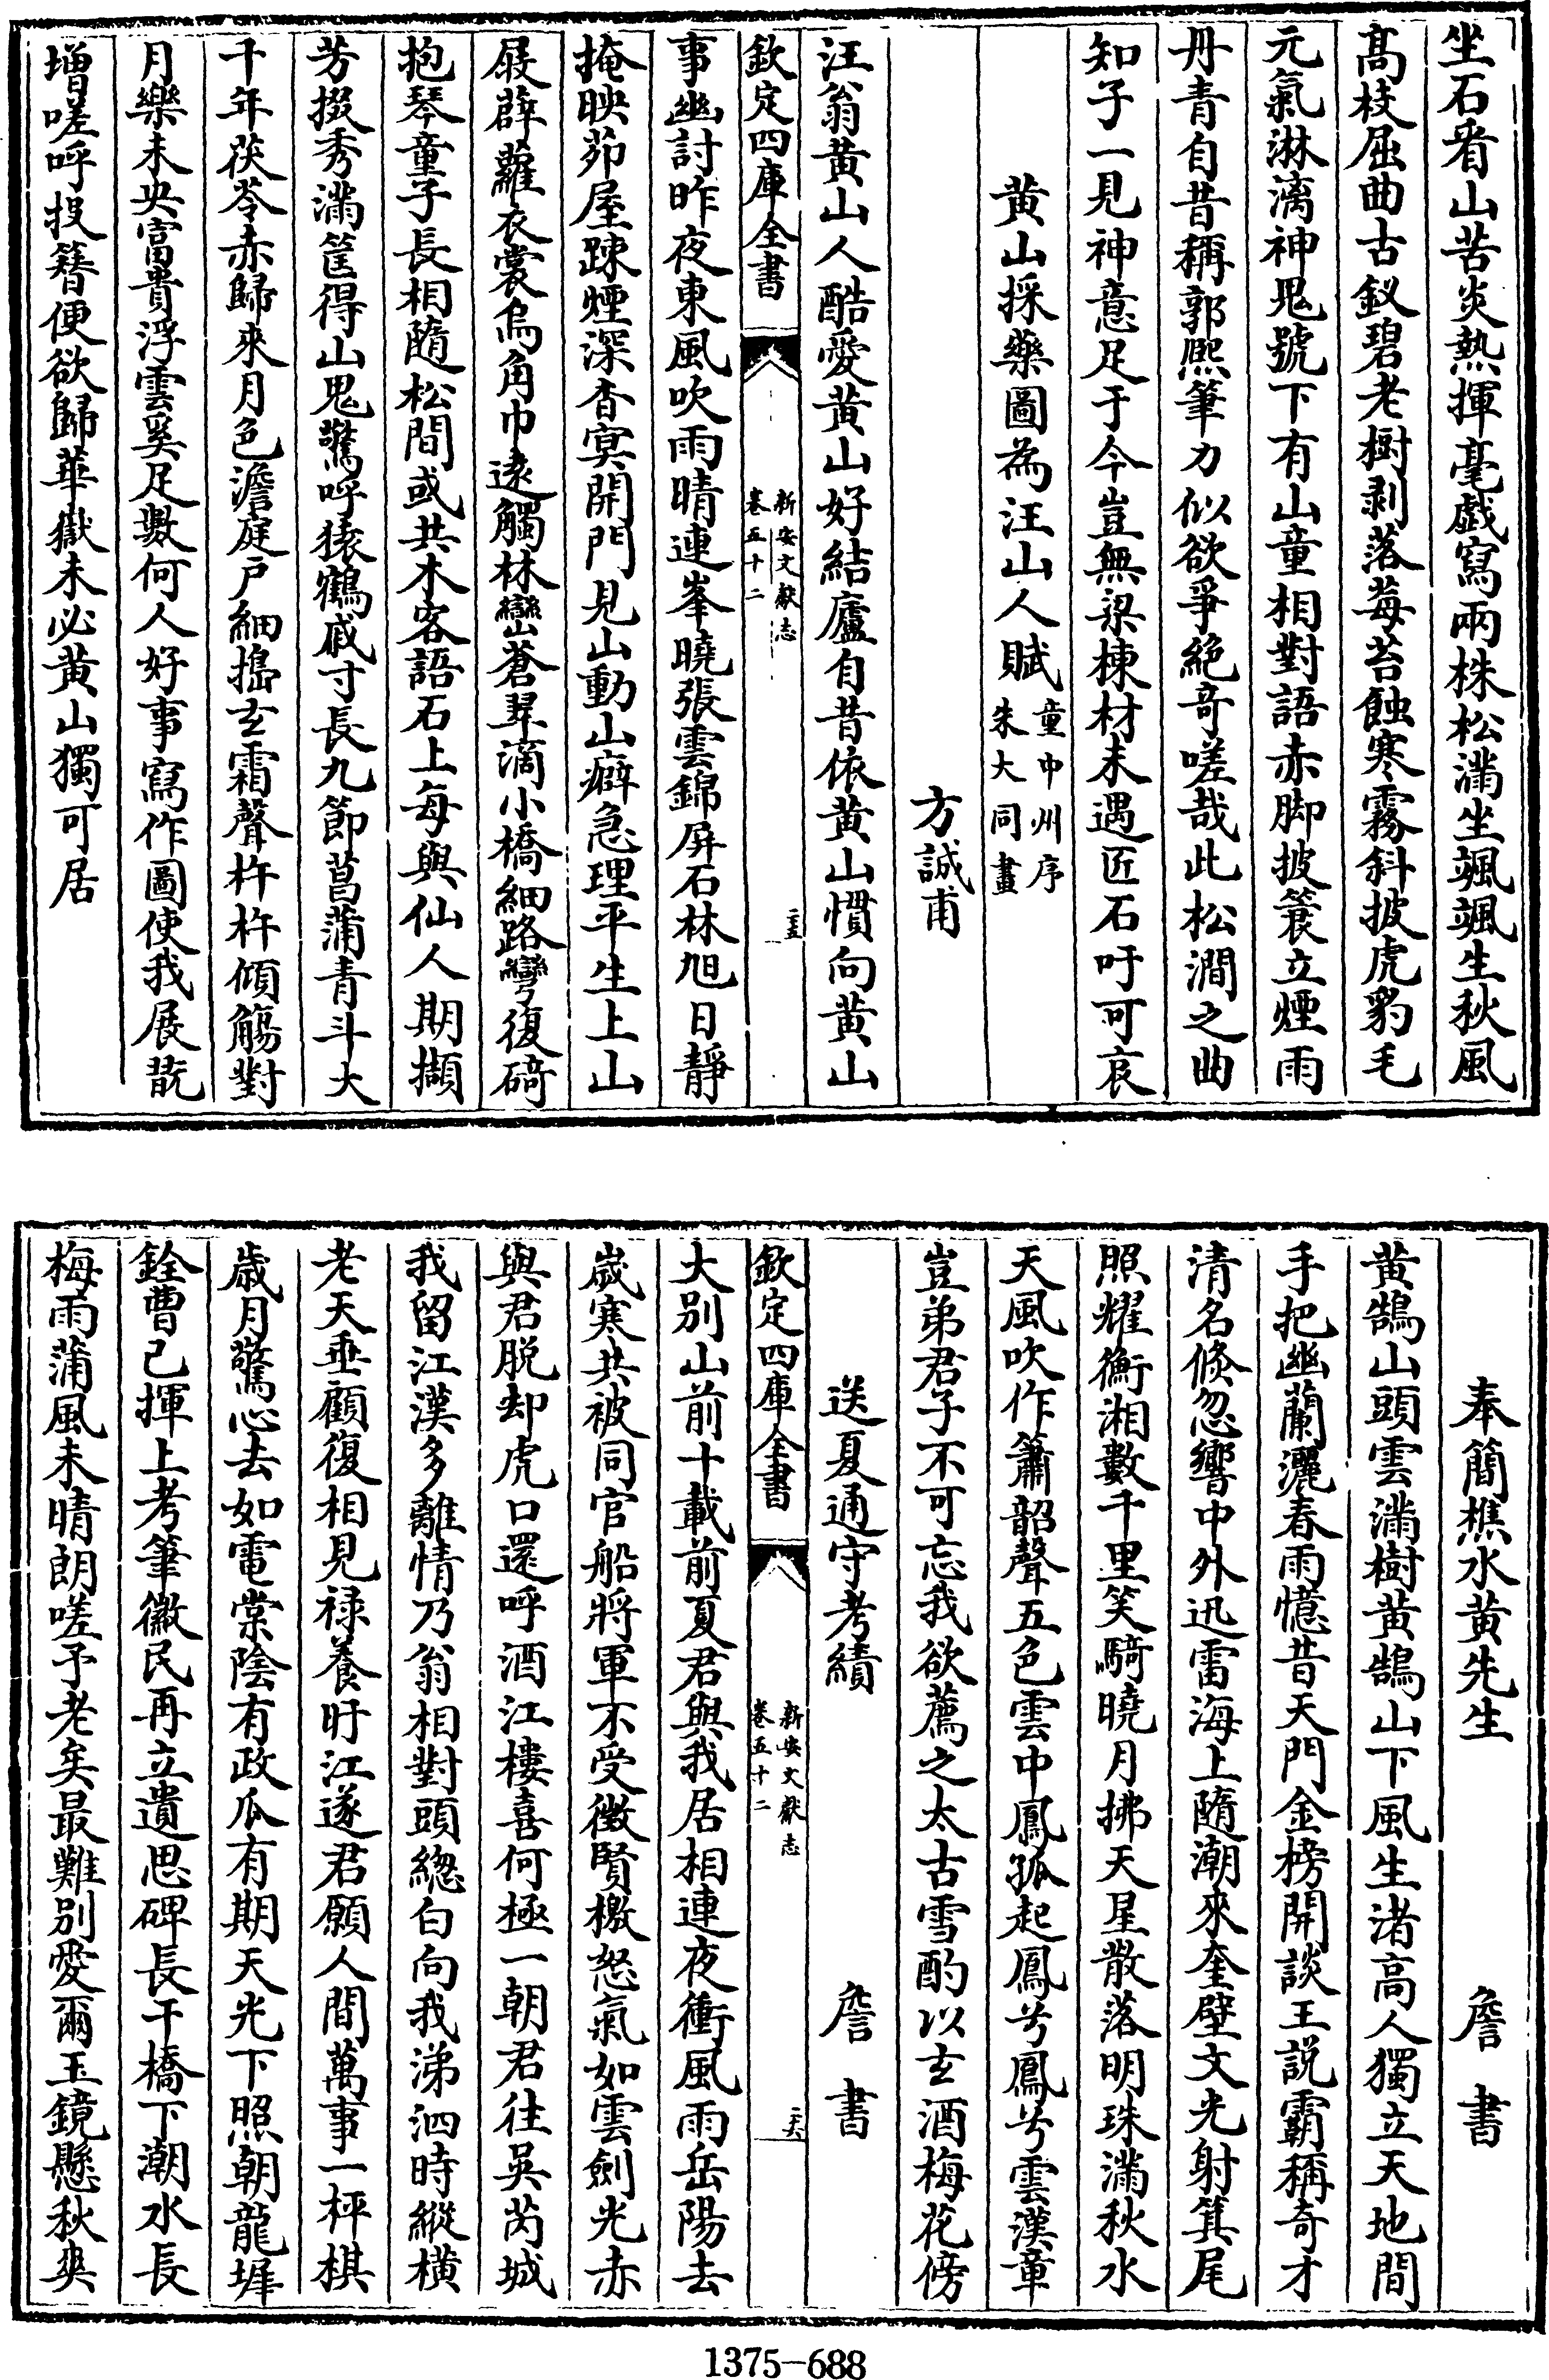 坐石看山苦炎熱揮毫戯寫兩株松滿坐颯颯生秋風
髙枝屈曲古釵碧老樹剥落莓苔蝕寒霧斜披虎豹毛
元氣淋漓神鬼號下有山童相對語赤脚披簑立煙雨
丹青自昔稱郭熙筆力似欲爭絶奇嗟哉此松澗之曲
知子一見神意足于今豈無梁棟材未遇匠石吁可哀
黄山採藥圖為汪山人賦童中州序朱大同畫
方誠甫
汪翁黄山人酷愛黄山好結廬自昔依黄山慣向黄山
欽定四庫全書
新安文獻志
卷五十二
二五
事幽討昨夜東風吹雨晴連峯曉張雲錦屏石林旭日靜
掩映茆屋踈煙深杳㝠開門見山動山癖急理平生上山
屐薜蘿衣裳烏角巾逺觸林巒蒼翠滴小橋細路彎復碕
抱琴童子長相隨松間或共木客語石上每與仙人期擷
芳掇秀滿筐得山鬼驚呼猿鶴戚寸長九節菖蒲青斗大
千年茯苓赤歸來月色澹庭户細搗玄霜聲杵杵傾觴對
月樂未央富貴浮雲奚足數何人好事寫作圖使我展翫
増嗟呼投簪便欲歸華嶽未必黄山獨可居
奉簡樵水黄先生
詹書
黄鵠山頭雲滿樹黄鵠山下風生渚高人獨立天地間
手把幽蘭灑春雨憶昔天門金榜開談王説霸稱奇才
清名倐忽響中外迅雷海上隨潮來奎壁文光射箕尾
照耀衡湘數千里笑騎曉月拂天星散落明珠滿秋水
天風吹作簫韶聲五色雲中鳳孤起鳳兮鳳兮雲漢章
豈弟君子不可忘我欲薦之太古雪酌以玄酒梅花傍
送夏通守考績
詹書
欽定四庫全書
新安文獻志
卷五十二
二六
大别山前十載前夏君與我居相連夜衝風雨岳陽去
歳寒共被同官船將軍不受徴賢檄怒氣如雲劍光赤
與君脱却虎口還呼酒江樓喜何極一朝君往吳芮城
我留江漢多離情乃翁相對頭緫白向我涕泗時縱横
老天垂顧復相見禄養盱江遂君願人間萬事一枰棋
歳月驚心去如電棠陰有政瓜有期天光下照朝龍墀
銓曹已揮上考筆徽民再立遺思碑長干橋下潮水長
梅雨蒲風未晴朗嗟予老矣最難别愛爾玉鏡懸秋爽
1375-688